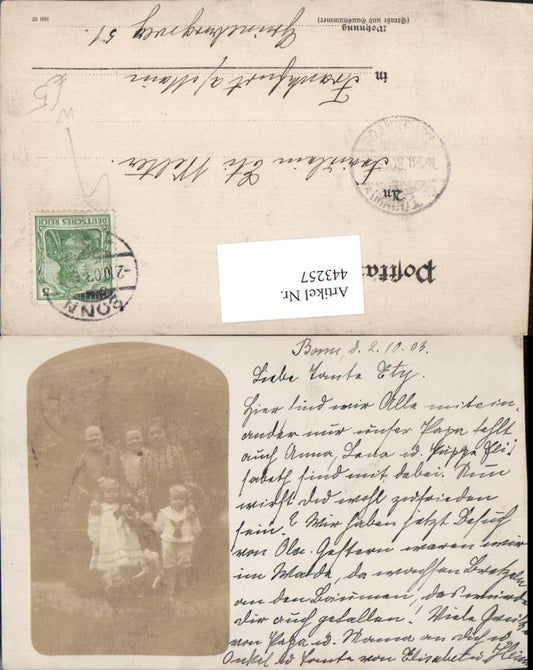 Postkarte
An
Fräulein Ety. Welter.
in
Frankfurt a/Main
Wohnung
(Straße und Hausnummer)
Grüneburgweg 51.
DEUTSCHES REICH
BONN
Artikel Nr.
443257
Bonn, d. 2. 10. 03.
Liebe Tante Ety.
Hier sind wir Alle mitein-
ander nur unser Papa fehlt
auch Anna, Lena u. Puppe Eli
sabeth sind mit dabei. Nun
wirst du wohl zufrieden
sein. Wir haben jetzt Besuch
von Gestern waren wir
im Walde, da wachsen Bretzeln
an den Bäumen, das würde
dir auch gefallen! Viele Grüße
von Papa u. Mama an dich u.
Onkel u. Tante von Elisabeth u.